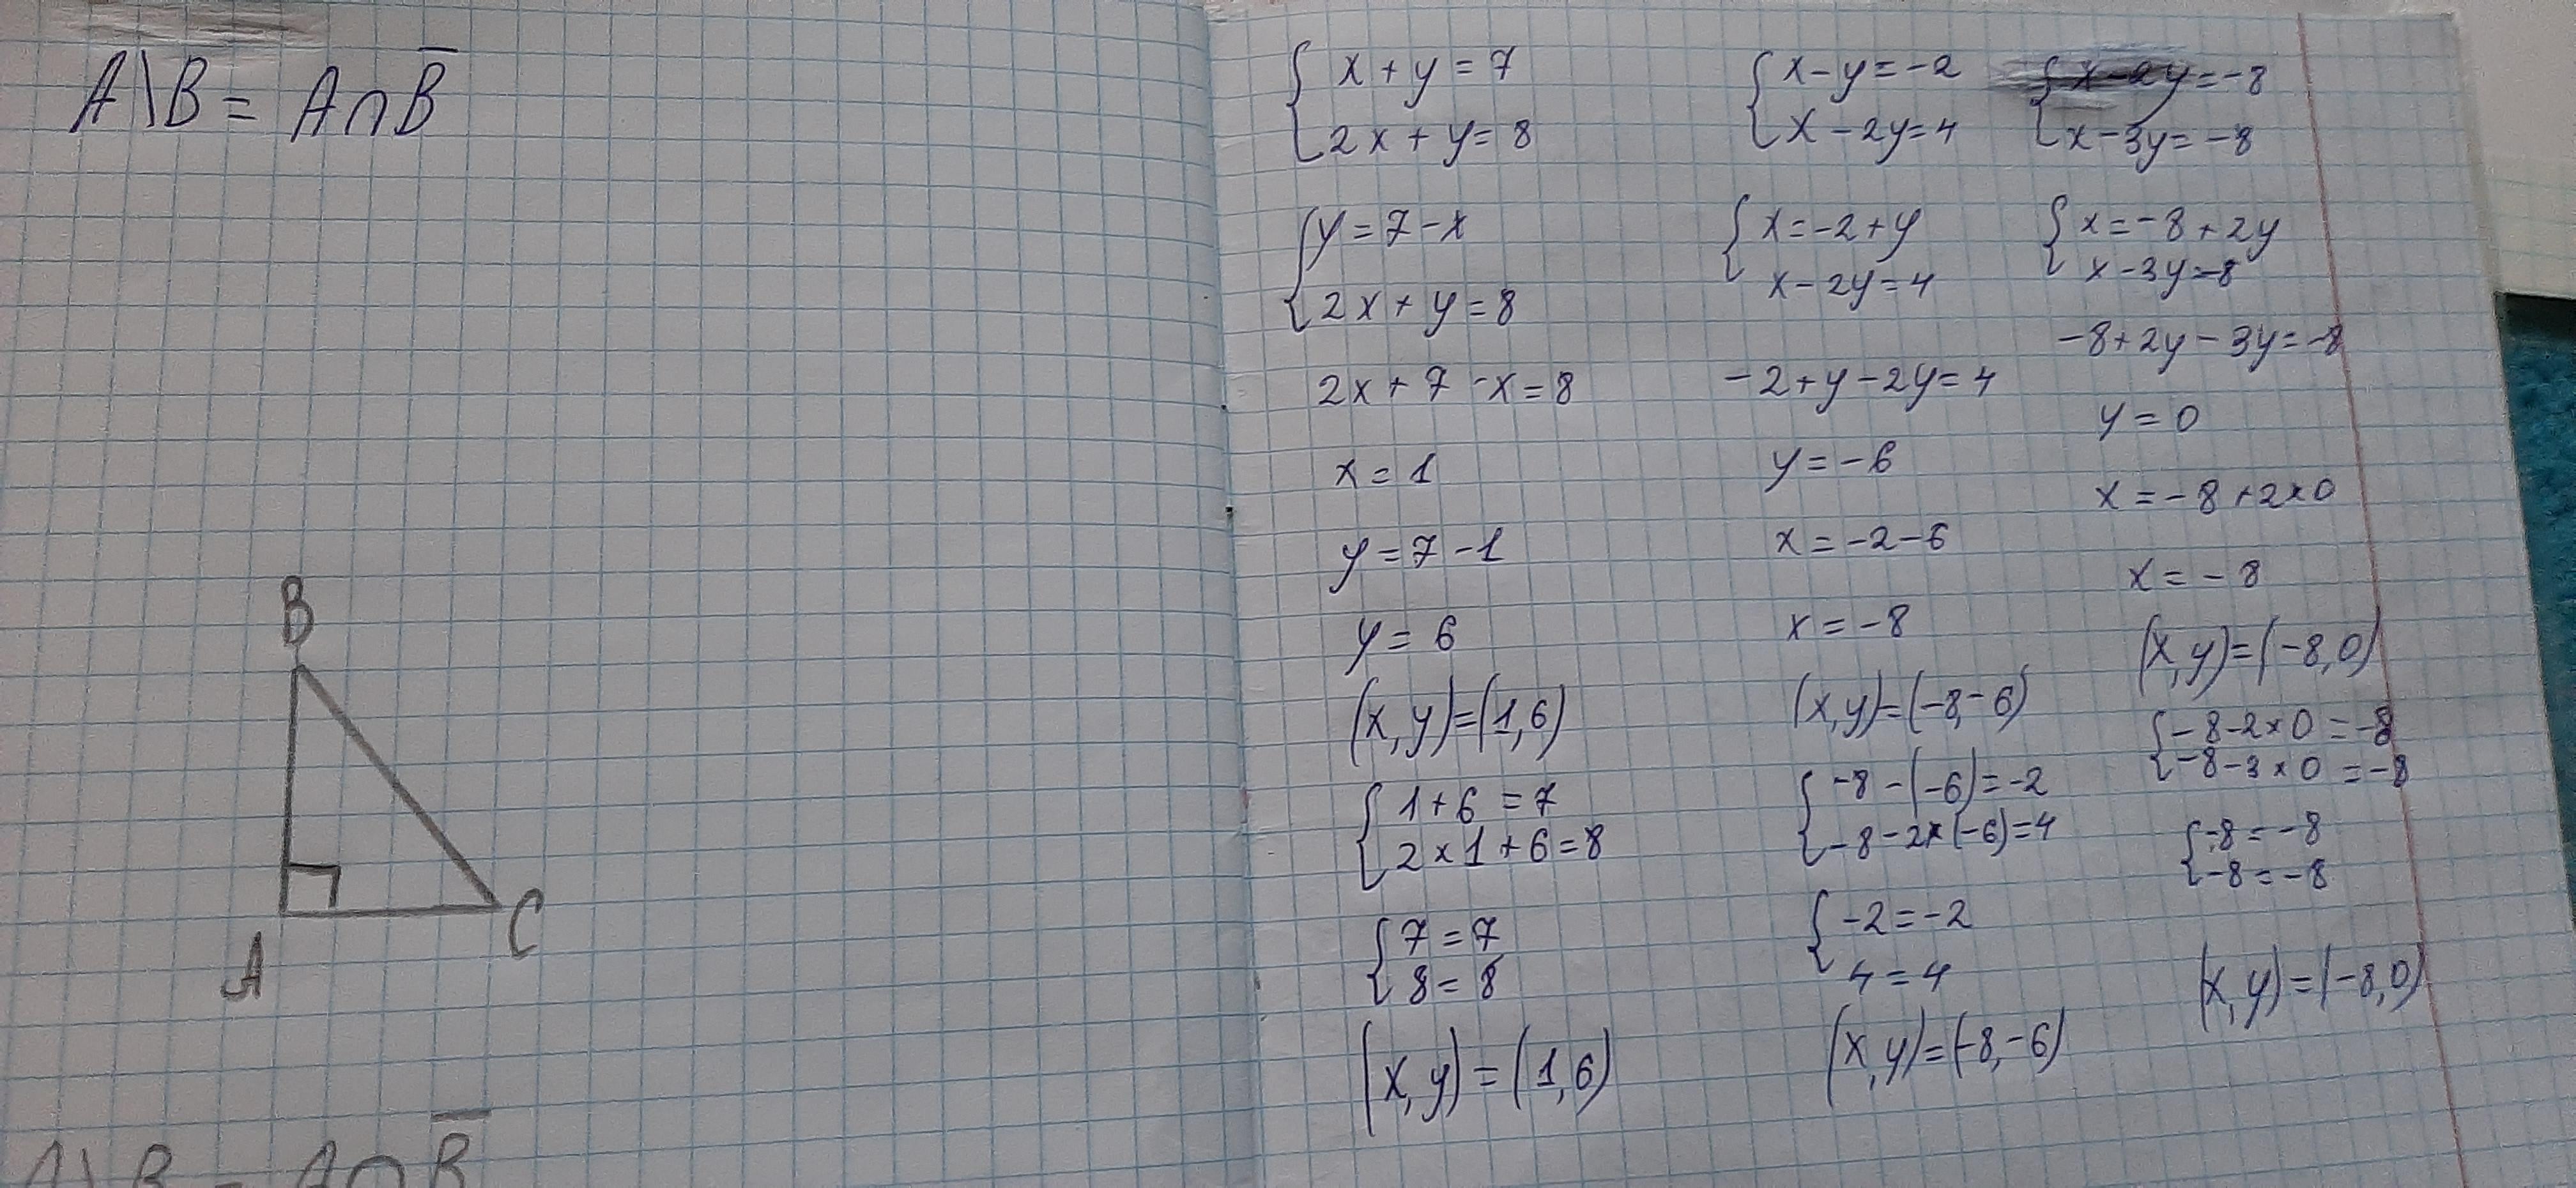 A\B = A∩B̅
B
A
C
A\B = A∩B̅
{ x + y = 7
2x + y = 8
{ y = 7 - x
2x + y = 8
2x + 7 - x = 8
x = 1
y = 7 - 1
y = 6
(x, y) = (1, 6)
{ 1 + 6 = 7
2 × 1 + 6 = 8
{ 7 = 7
8 = 8
(x, y) = (1, 6)
{ x - y = -2
x - 2y = 4
{ x = -2 + y
x - 2y = 4
-2 + y - 2y = 4
y = -6
x = -2 - 6
x = -8
(x, y) = (-8, -6)
{ -8 - (-6) = -2
-8 - 2 × (-6) = 4
{ -2 = -2
4 = 4
(x, y) = (-8, -6)
{ x - 2y = -8
x - 3y = -8
{ x = -8 + 2y
x - 3y = -8
-8 + 2y - 3y = -8
y = 0
x = -8 + 2 × 0
x = -8
(x, y) = (-8, 0)
{ -8 - 2 × 0 = -8
-8 - 3 × 0 = -8
{ -8 = -8
-8 = -8
(x, y) = (-8, 0)